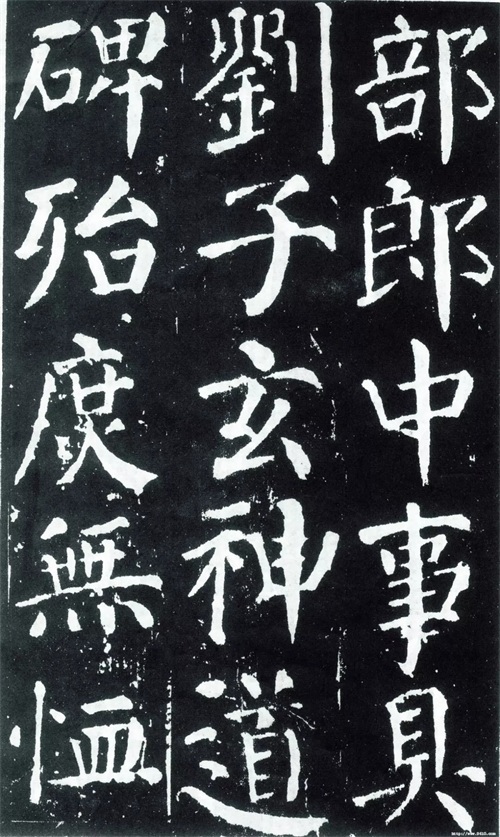 部郎中事具
劉子玄神道
碑殆庶無恤